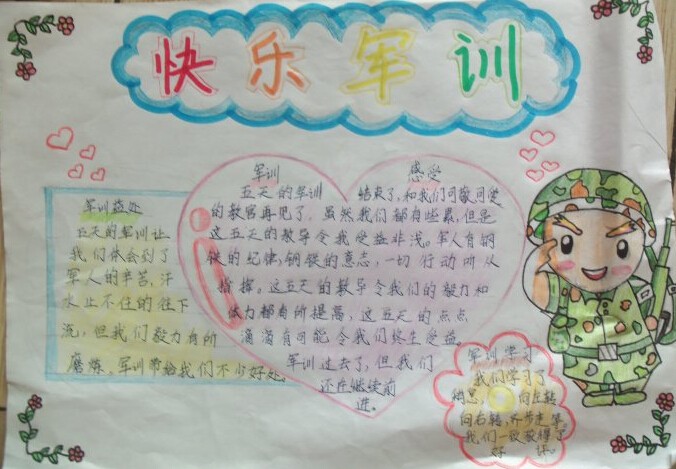 快乐军训
军训益处
五天的军训让
我们体会到了
军人的辛苦,汗
水止不住的往下
流,但我们毅力有所
磨炼。军训带给我们不少好处。
军训 感受
五天的军训 结束了,和我们可敬可爱
的教官再见了,虽然我们都有些累,但是
这五天的教导令我受益非浅。军人有钢
铁的纪律,钢铁的意志,一切行动听从
指挥。这五天的教导令我们的毅力和
体力都有所提高,这五天的点点
滴滴有可能令我们终生受益。
军训过去了,但我们
还在继续前
进。
军训学习
我们学习了
稍息、 向左转
向右转,齐步走等。
我们一致获得了
好评。